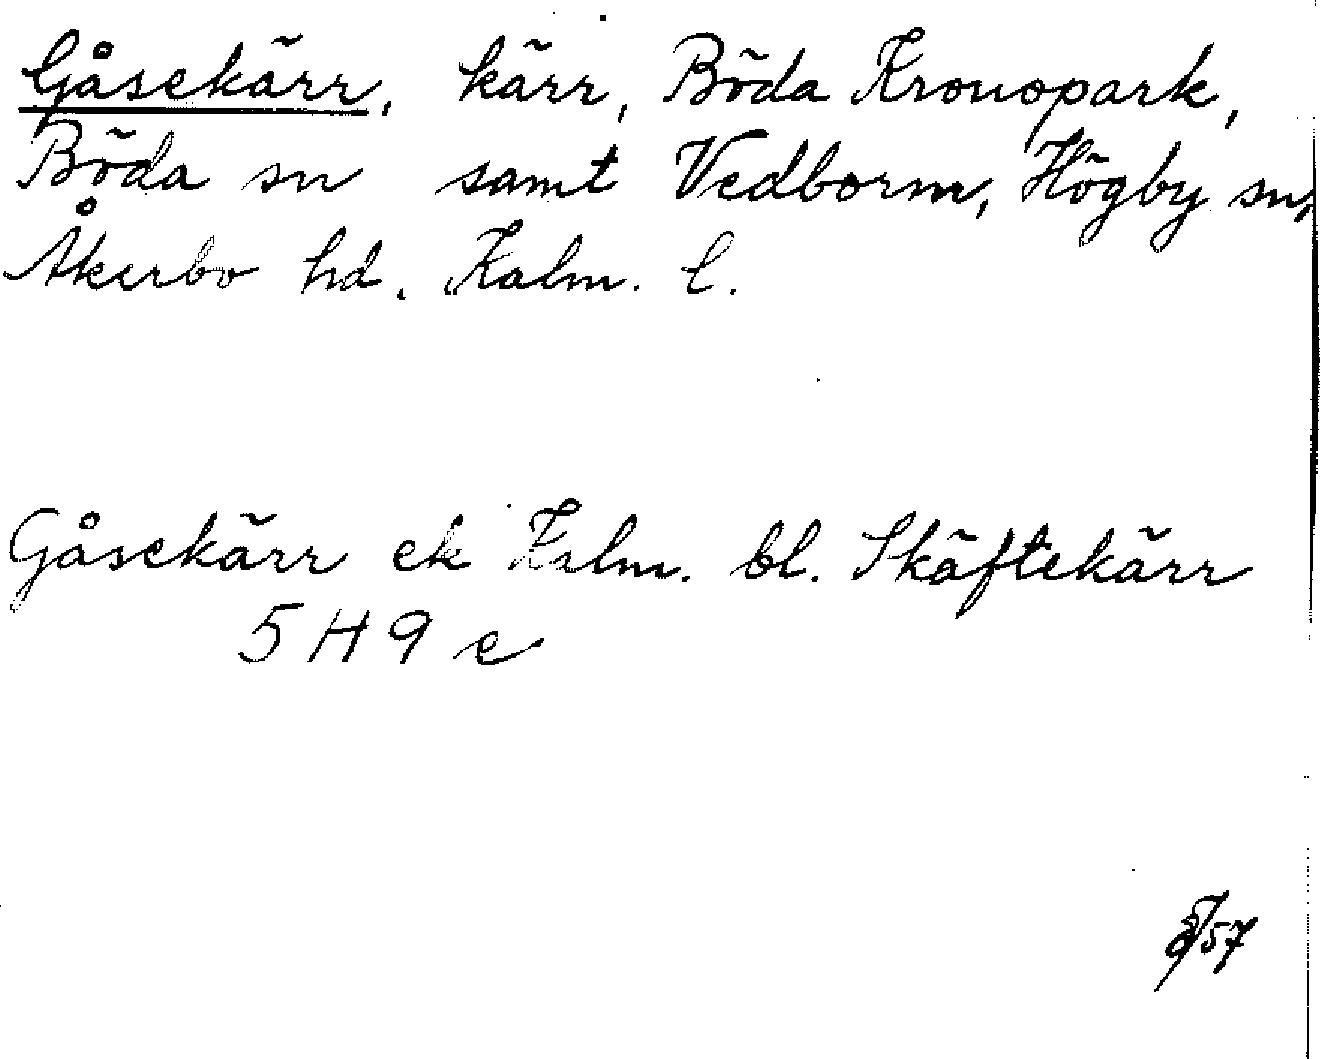 Gåsekärr, kärr, Böda Kronopark,
Böda sn samt Vedborm, Högby sn,
Åkerbo hd. Kalm. l.
Gåsekärr ek Kalm. bl. Skäftekärr
5 H 9 e
/57